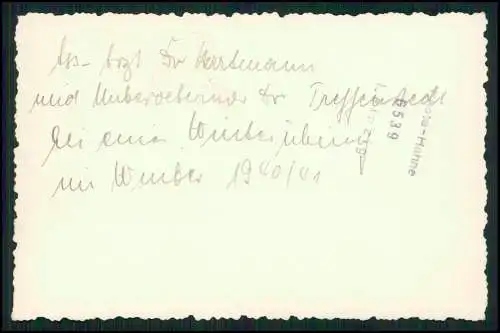 Ass-Arzt Dr Hartmann
und Unterveterinär Dr. Treffenstedt
bei einer Winterübung
im Winter 1940/41
Foto-Hähne
6539